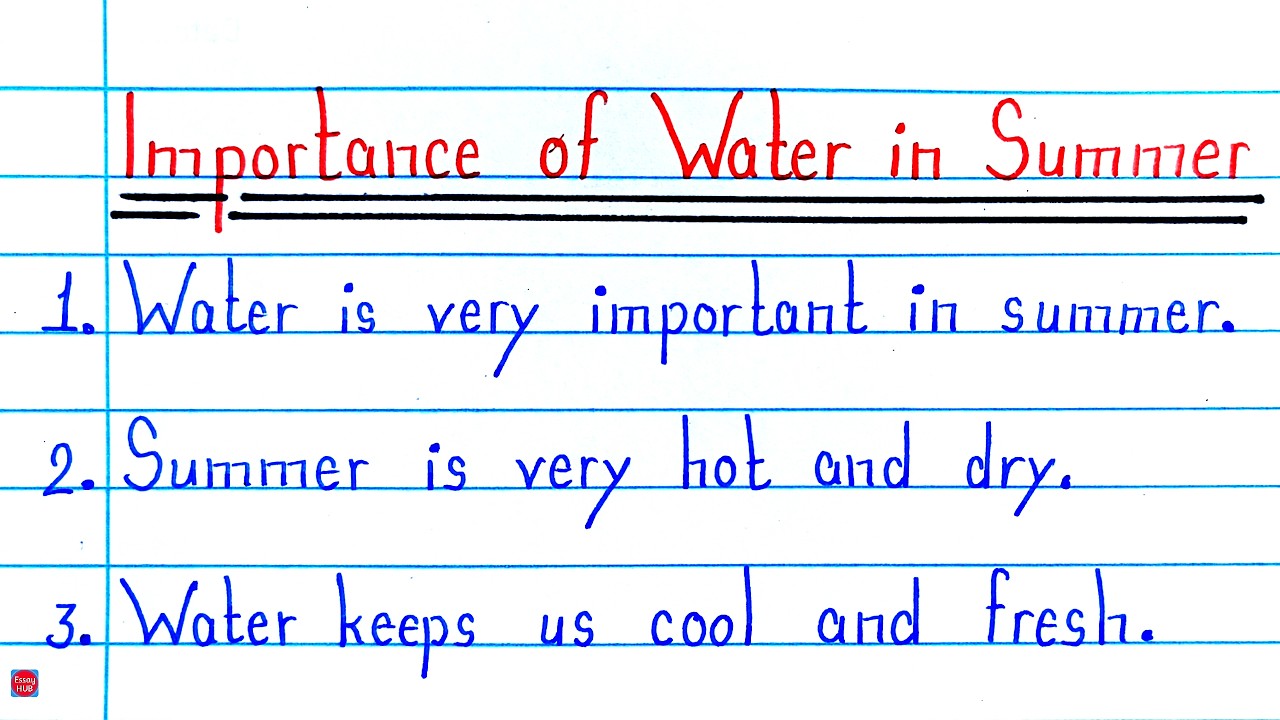 Importance of Water in Summer
1. Water is very important in summer.
2. Summer is very hot and dry.
3. Water keeps us cool and fresh.
Essay
HUB